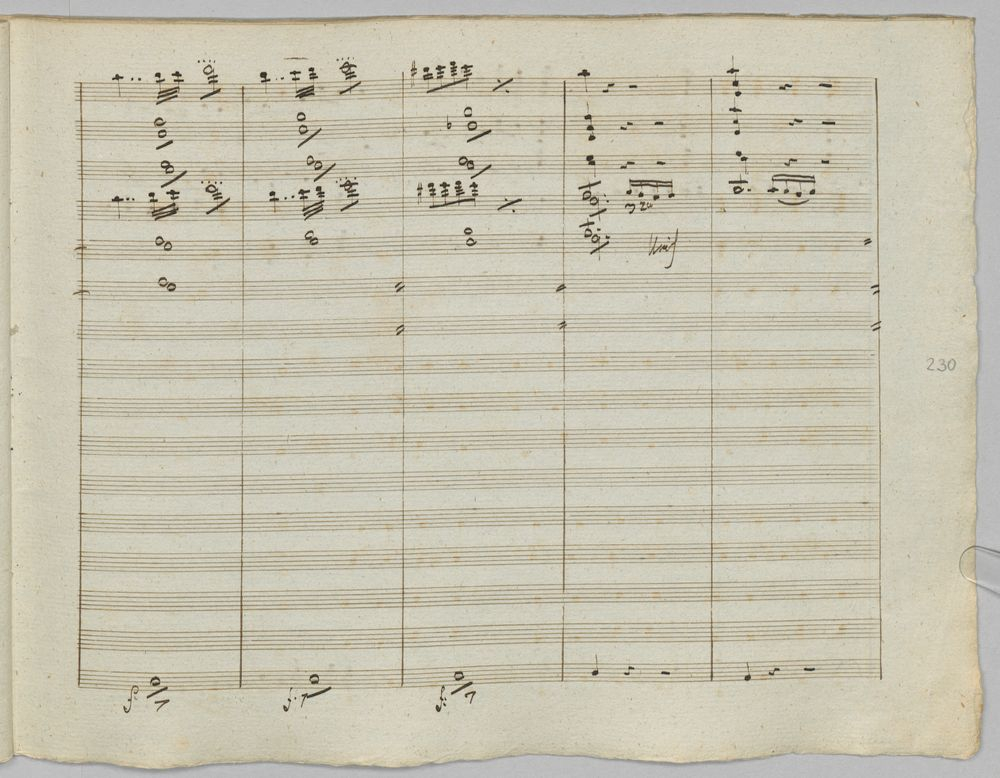 unis
230
f:
f:
f: